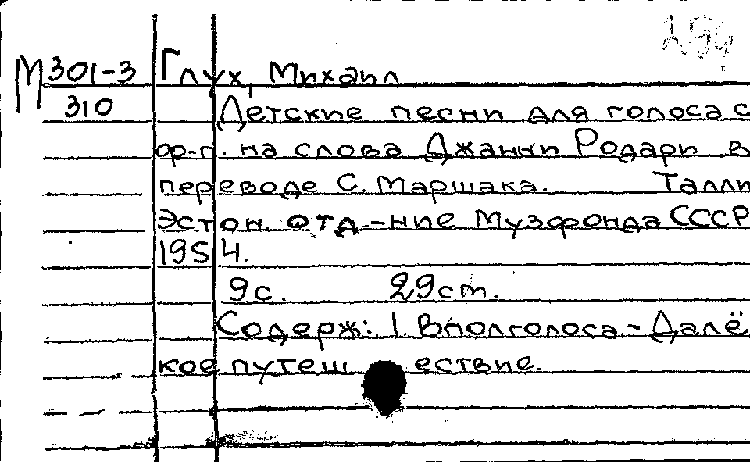 294
М 301-3 Глух, Михаил
310 Детские песни для голоса с
ф-п. на слова Джанни Родари в
переводе С. Маршака. Талли
Эстон. отд-ние Музфонда СССР
1954.
9с. 29см.
Содерж: 1 Вполголоса - Далё
кое путешествие.